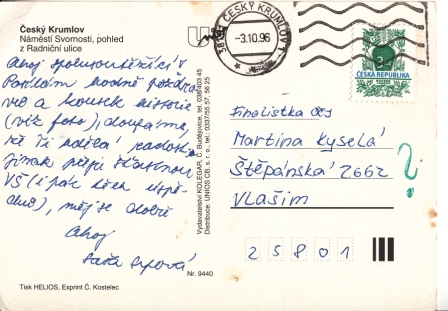 Český Krumlov
Náměstí Svornosti, pohled
z Radniční ulice
Ahoj
hodně pozdra-
vů a kousek historie
(viz foto), doufáme,
že Ti udělá radost.
Jinak přeju šťastnou
VŠ (i pár
), měj se dobře
Ahoj
Nr. 9440
Tisk HELIOS, Exprint Č. Kostelec
Vydavatelství KOLEGAR, Č. Budějovice, tel. 038/403 45
Distribuce: UNIOS CB, s. r. o., tel.: 0337/55 57, 56 25
UNIOS
ČESKÝ KRUMLOV 1
381 01
-3.10.96
3 Kč
ČESKÁ REPUBLIKA
Finalistka
Martina Kyselá
Štěpánská 2662
Vlašim
?
25801